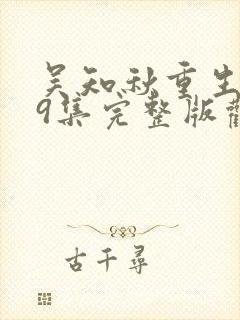 吴知秋重生
9集完整版
古千尋